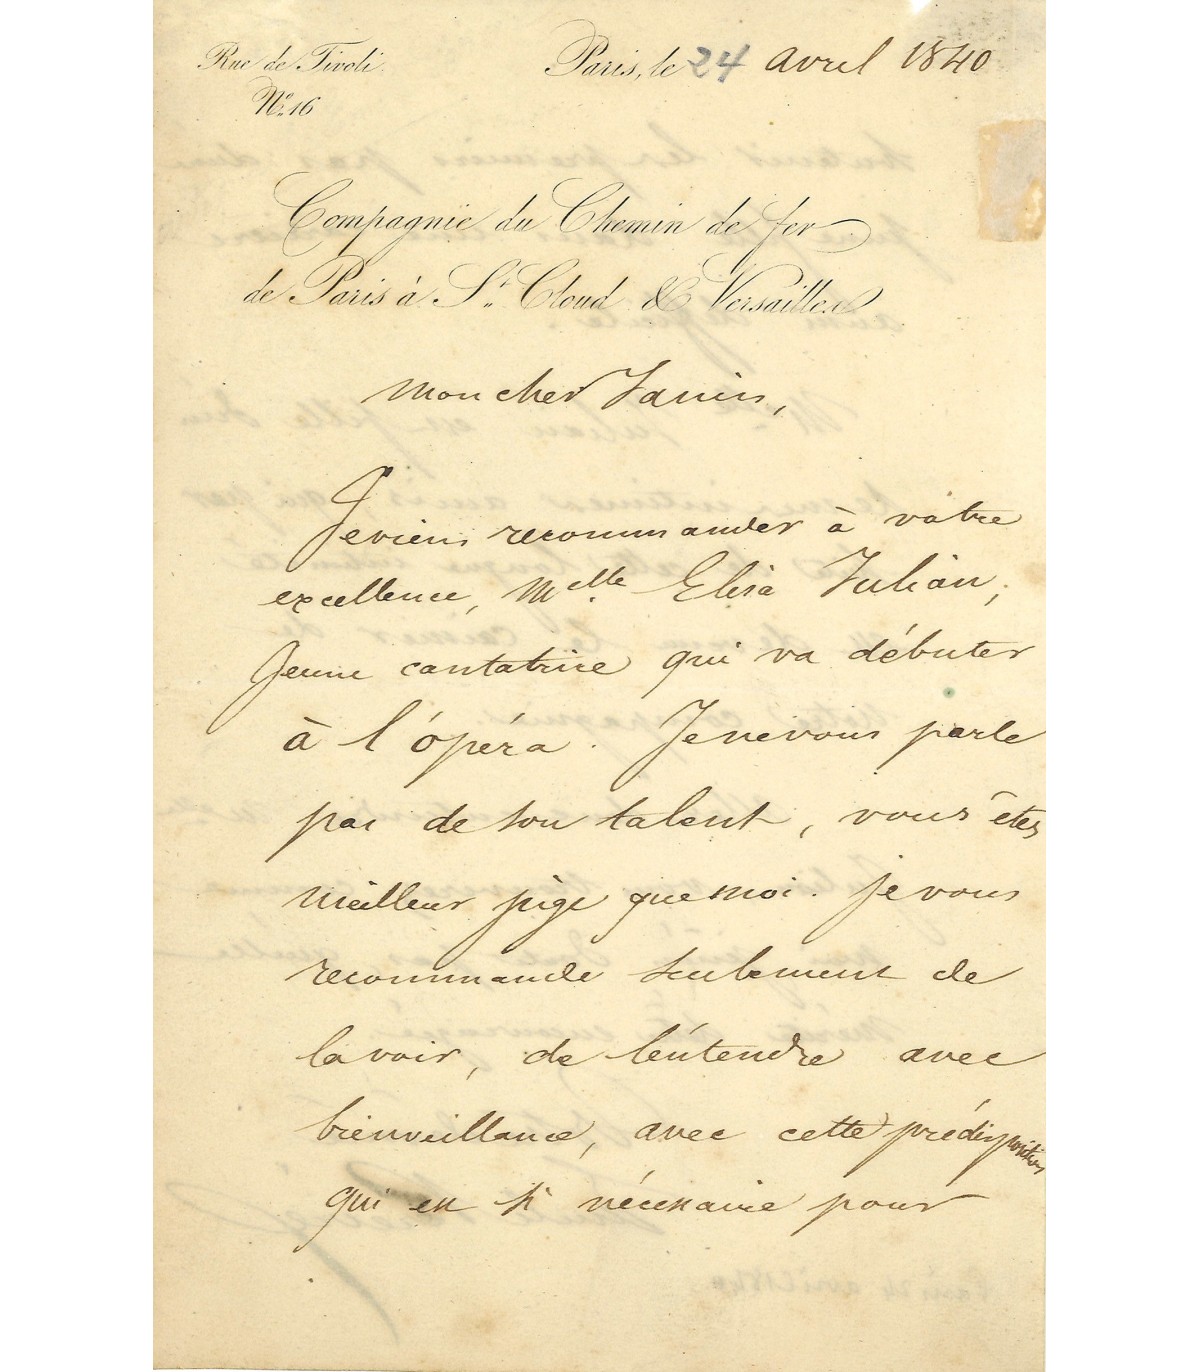 Rue de Tivoli
N° 16
Paris, le 24 avril 1840
Compagnie du Chemin de fer
de Paris à St. Cloud & Versailles
Mon cher Janin,
Je viens recommander à votre
excellence, Melle Elisa Julian,
jeune cantatrice qui va débuter
à l'opéra. Je ne vous parle
pas de son talent, vous êtes
meilleur juge que moi. je vous
recommande seulement de
la voir, de l'entendre avec
bienveillance, avec cette prédisposition
qui est si nécessaire pour